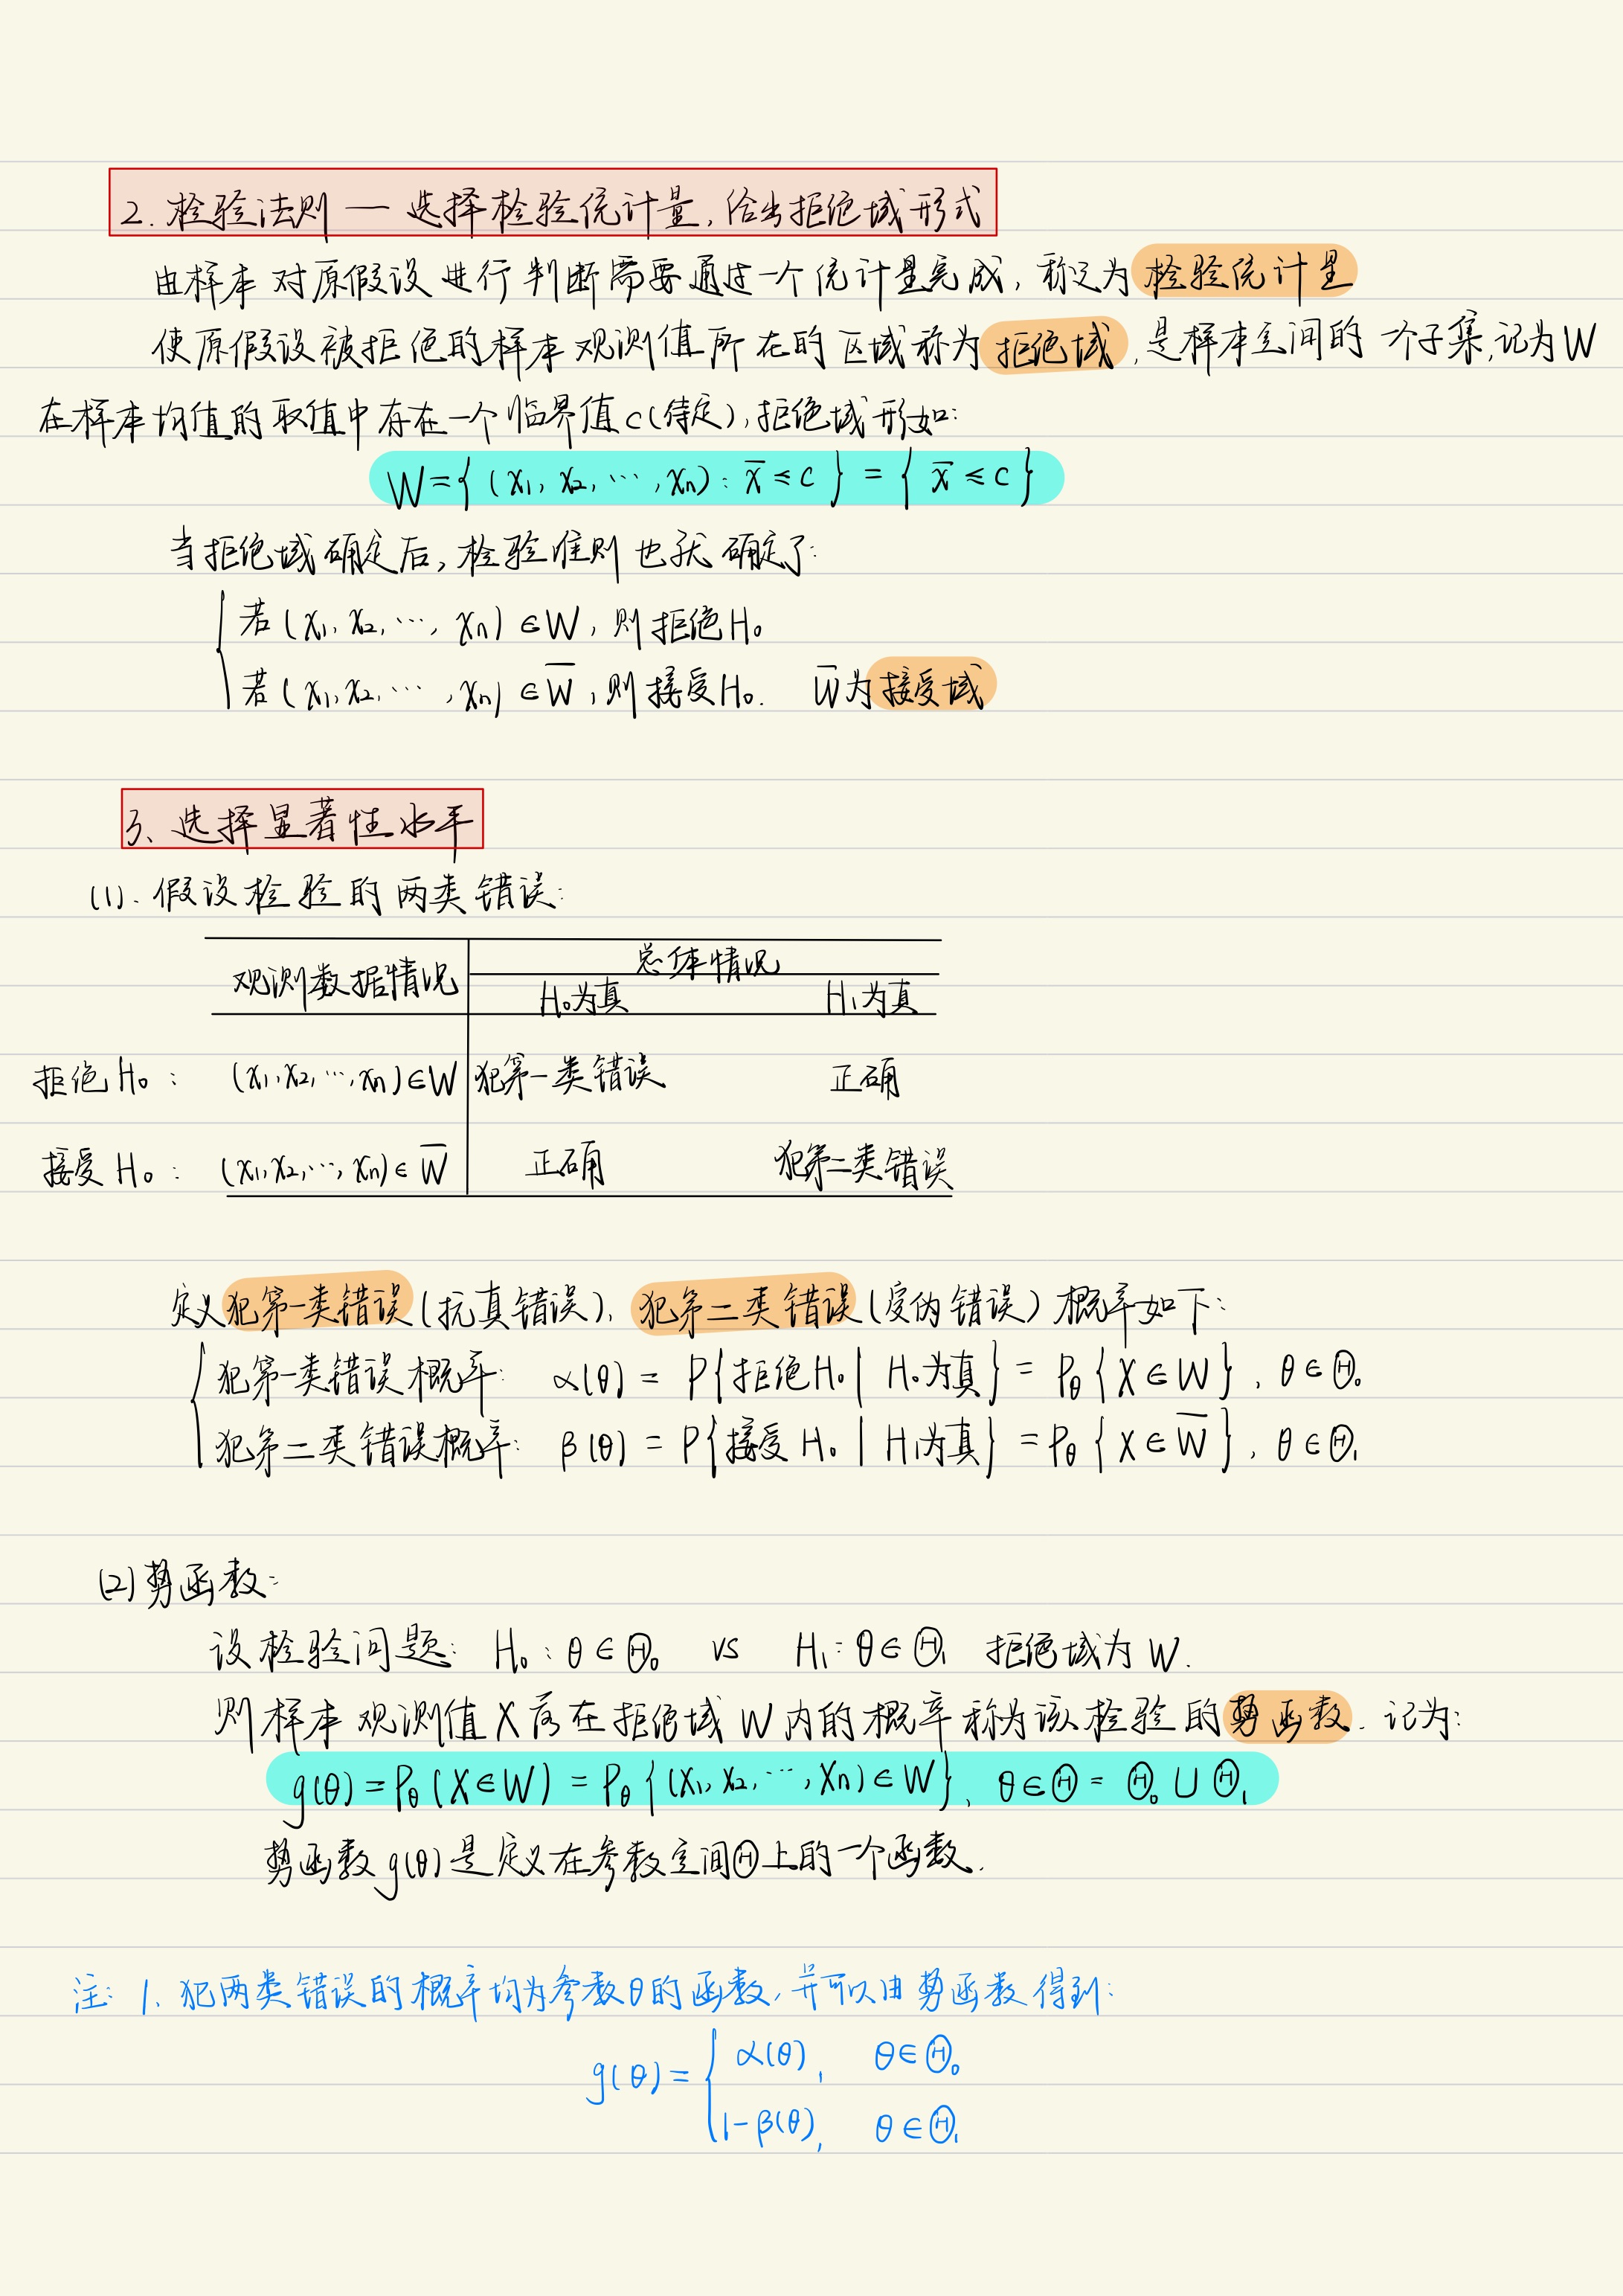 2. 检验法则 — 选择检验统计量, 给出拒绝域形式
由样本对原假设进行判断需要通过一个统计量完成, 称之为检验统计量
使原假设被拒绝的样本观测值所在的区域称为拒绝域, 是样本空间的一个子集, 记为W
在样本均值的取值中存在一个临界值c(待定), 拒绝域形如:
W={(x₁, x₂, ⋯, xₙ): x̄ ≤ c} = {x̄ ≤ c}
当拒绝域确定后, 检验准则也就确定了:
若(x₁, x₂, ⋯, xₙ) ∈ W, 则拒绝H₀
若(x₁, x₂, ⋯, xₙ) ∈ W̅, 则接受H₀. W̅为接受域
3、选择显著性水平
(1). 假设检验的两类错误:
观测数据情况 总体情况
H₀为真 H₁为真
拒绝H₀: (x₁, x₂, ⋯, xₙ)∈W 犯第一类错误 正确
接受H₀: (x₁, x₂, ⋯, xₙ)∈W̅ 正确 犯第二类错误
定义犯第一类错误(抗真错误), 犯第二类错误(受伪错误)概率如下:
犯第一类错误概率: α(θ) = P{拒绝H₀| H₀为真} = P_θ{X∈W}, θ∈Θ₀
犯第二类错误概率: β(θ) = P{接受H₀| H₁为真} = P_θ{X∈W̅}, θ∈Θ₁
(2)势函数:
设检验问题: H₀: θ∈Θ₀ vs H₁: θ∈Θ₁ 拒绝域为W.
则样本观测值X落在拒绝域W内的概率称为该检验的势函数. 记为:
g(θ)=P_θ(X∈W) = P_θ{(x₁, x₂, ⋯, xₙ)∈W}, θ∈Θ = Θ₀∪Θ₁
势函数g(θ)是定义在参数空间Θ上的一个函数.
注: 1、犯两类错误的概率均为参数θ的函数, 并可以由势函数得到:
g(θ)=
α(θ), θ∈Θ₀
1-β(θ), θ∈Θ₁